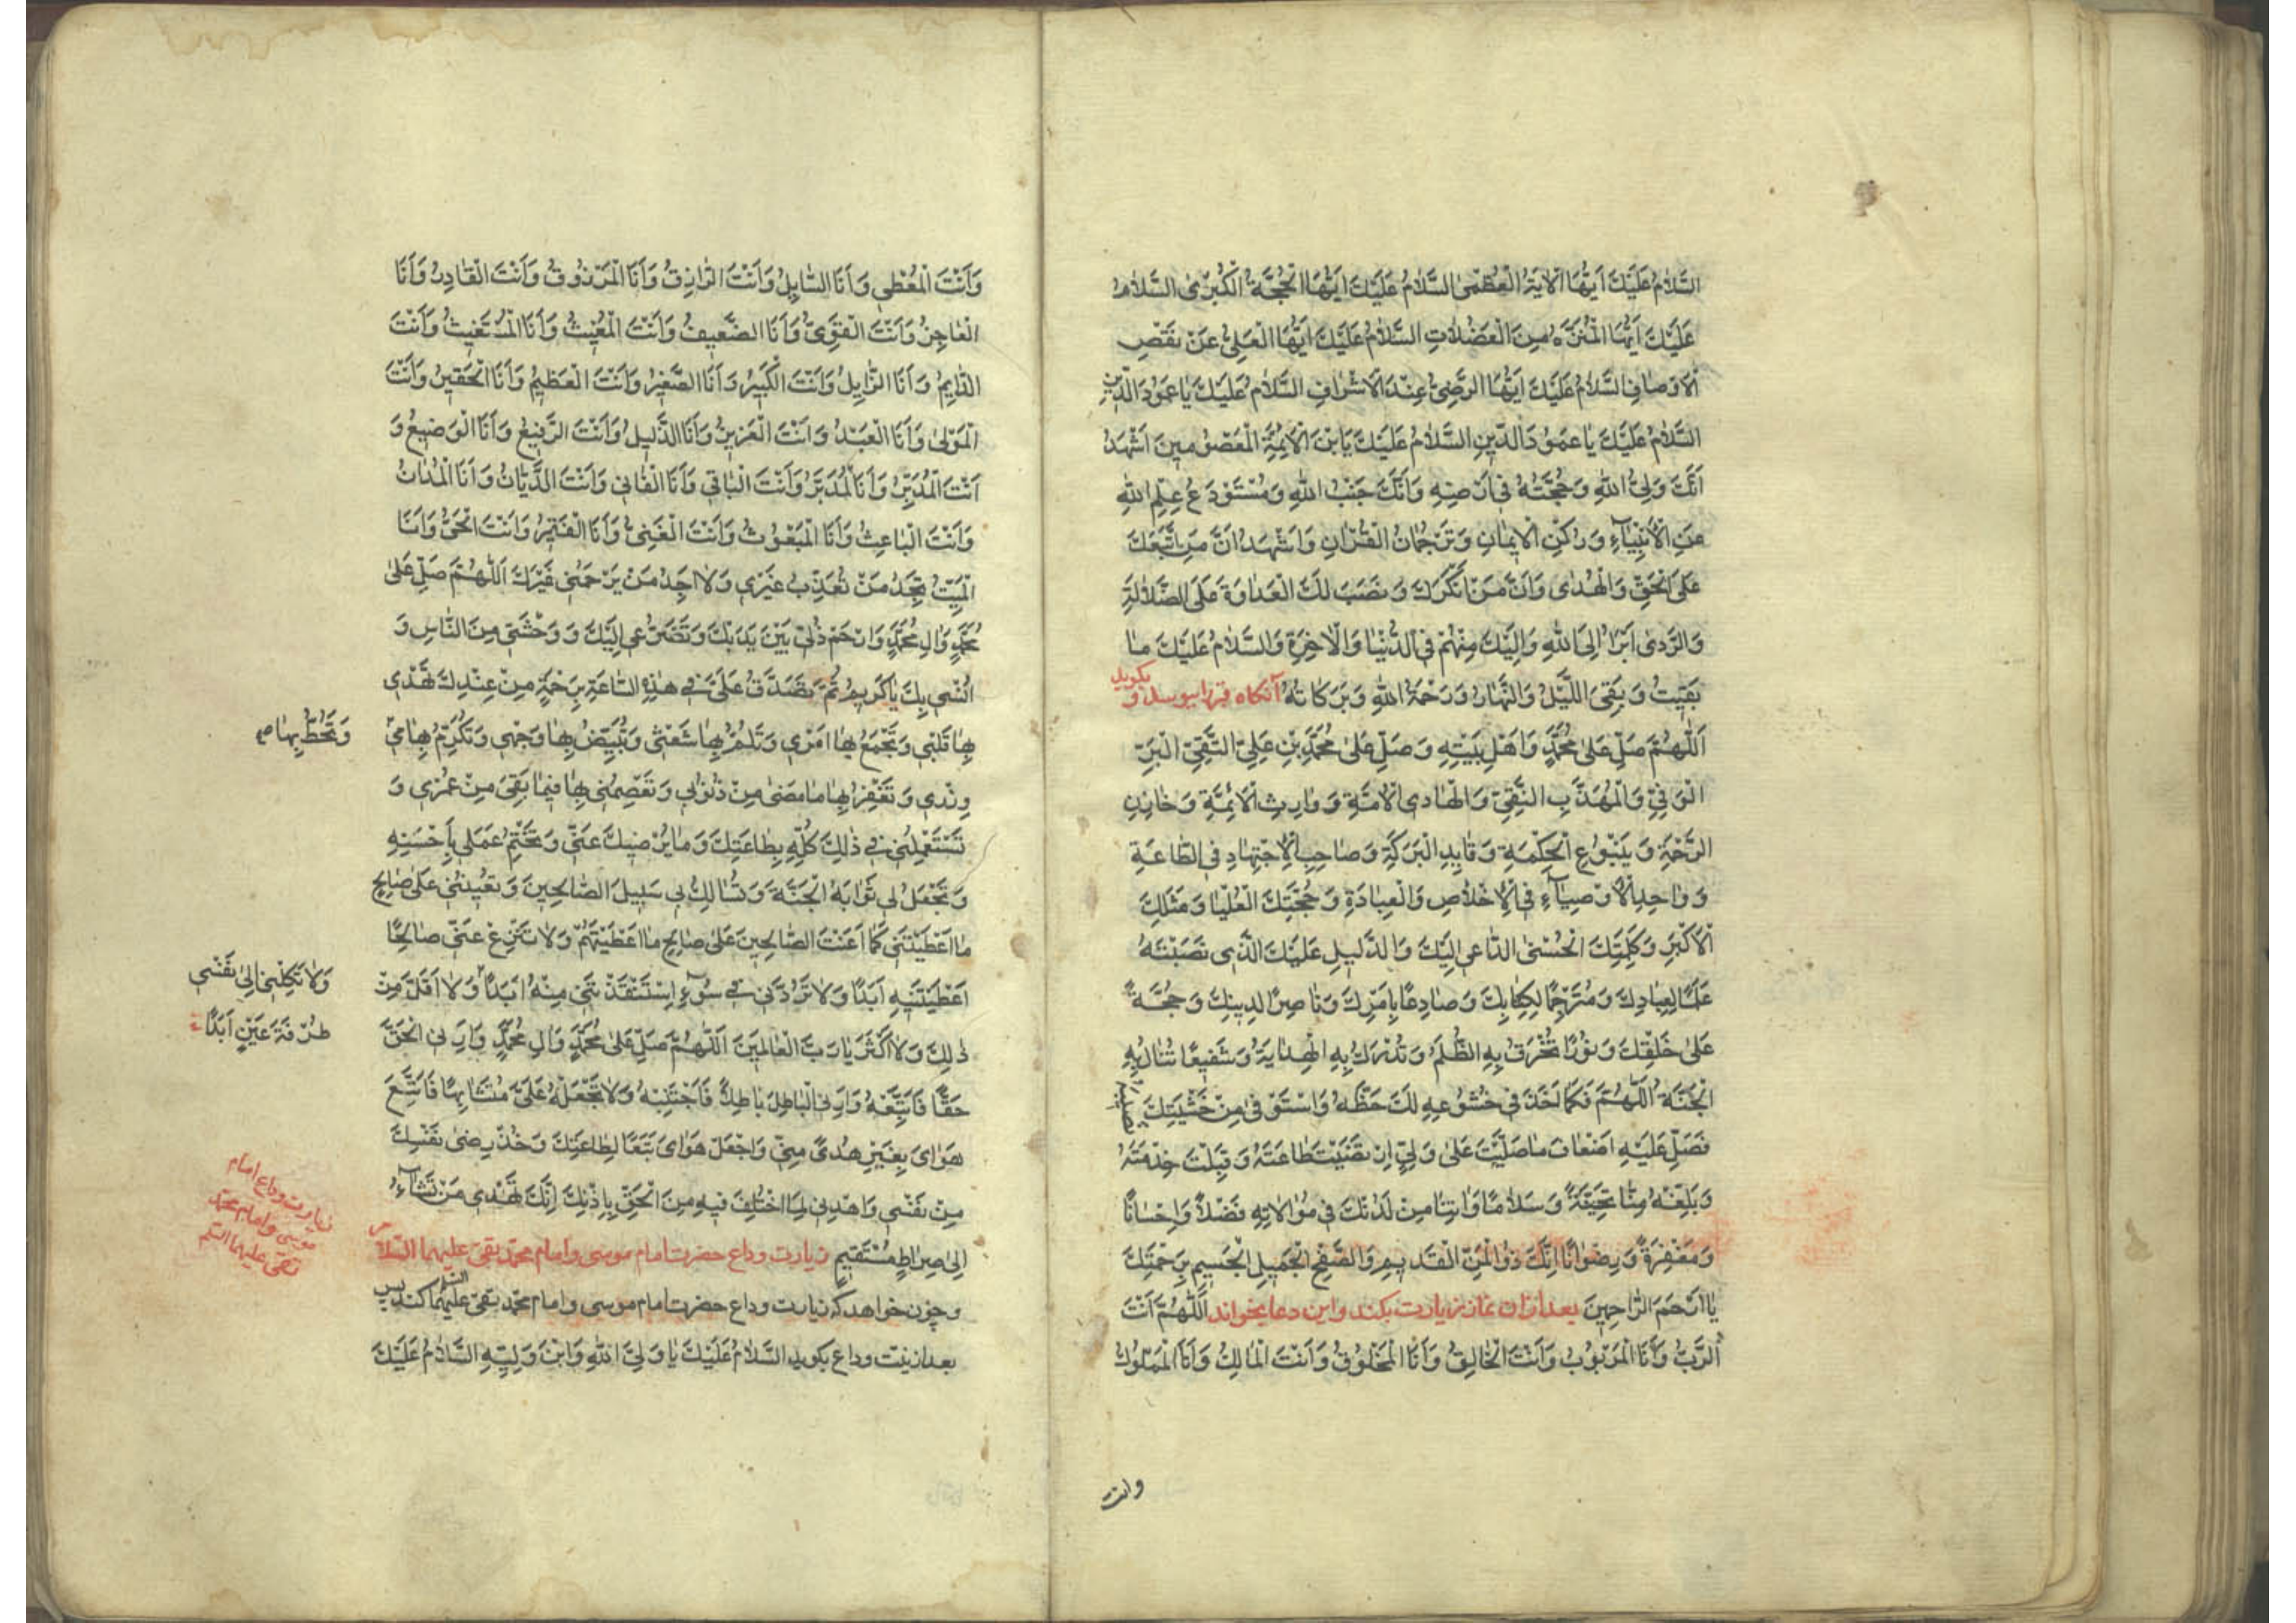 السَّلَامُ عَلَيْكَ اَيَّتُهَا الْاٰيَةُ الْعُظْمٰى السَّلَامُ عَلَيْكَ اَيَّتُهَا الْحُجَّةُ الْكُبْرٰى السَّلَامُ
عَلَيْكَ اَيُّهَا الْمُنَزَّهُ مِنَ الْعَضُلَاتِ السَّلَامُ عَلَيْكَ اَيُّهَا الْعَلِىُّ عَنْ نَقْصِ
الْاَوْصَافِ السَّلَامُ عَلَيْكَ اَيُّهَا الرَّضِىُّ عِنْدَ الْاَشْرَافِ السَّلَامُ عَلَيْكَ يَا عَمُودَ الدّينِ
السَّلَامُ عَلَيْكَ يَا عَمُودَ الدِّينِ السَّلَامُ عَلَيْكَ يَابْنَ الْاَئِمَّةِ الْمَعْصُومِينَ اَشْهَدُ
اَنَّكَ وَلِىُّ اللهِ وَحُجَّتُهُ فِى اَرْضِهِ وَاَنَّكَ جَنْبُ اللهِ وَمُسْتَوْدَعُ عِلْمِ اللهِ
مَنِ الْاَنْبِيَآءِ وَرُكْنِ الْاِيمَانِ وَتَرْجُمَانُ الْقُرْاٰنِ وَاَشْهَدُ اَنَّ مَنِ اتَّبَعَكَ
عَلَى الْحَقِّ وَالْهُدٰى وَاَنَّ مَنْ اَنْكَرَكَ وَنَصَبَ لَكَ الْعَدَاوَةَ عَلَى الضَّلَالَةِ
وَالرَّدٰى اَبْرَاُ اِلَى اللهِ وَاِلَيْكَ مِنْهُمْ فِى الدُّنْيَا وَالْاٰخِرَةِ وَالسَّلَامُ عَلَيْكَ مَا
بَقِيتُ وَبَقِىَ اللَّيْلُ وَالنَّهَارُ وَرَحْمَةُ اللهِ وَبَرَكَاتُهُ آنكاه قبر را ببوسد و بكويد
اَللّٰهُمَّ صَلِّ عَلٰى مُحَمَّدٍ وَاَهْلِ بَيْتِهِ وَصَلِّ عَلٰى مُحَمَّدِ بْنِ عَلِىٍّ التَّقِىِّ الْبَرِّ
الْوَفِىِّ وَالْمُهَذَّبِ النَّقِىِّ وَالْهَادِى الْاُمَّةِ وَوَارِثِ الْاَئِمَّةِ وَخَازِنِ
الرَّحْمَةِ وَيَنْبُوعِ الْحِكْمَةِ وَقَايِدِ الْبَرَكَةِ وَصَاحِبِ الْاِجْتِهَادِ فِى الطَّاعَةِ
وَوَاحِدِ الْاَوْصِيَآءِ فِى الْاِخْلَاصِ وَالْعِبَادَةِ وَحُجَّتِكَ الْعُلْيَا وَمَثَلِكَ
الْاَكْبَرِ وَكَلِمَتِكَ الْحُسْنٰى الدَّاعِى اِلَيْكَ وَالدَّلِيلِ عَلَيْكَ الَّذِى نَصَبْتَهُ
عَلَمًا لِعِبَادِكَ وَمُتَرْجِمًا لِكِتَابِكَ وَصَادِعًا بِاَمْرِكَ وَنَاصِرًا لِدِينِكَ وَحُجَّةً
عَلٰى خَلْقِكَ وَنُورًا تُخْرَقُ بِهِ الظُّلَمُ وَتُدْرَكُ بِهِ الْهِدَايَةُ وَشَفِيعًا تُنَالُ بِهِ
الْجَنَّةُ اَللّٰهُمَّ فَكَمَا اَخَذَ فِى خُشُوعِهِ لَكَ حَظَّهُ وَاسْتَوْفٰى مِنْ خَشْيَتِكَ نصيبه
فَصَلِّ عَلَيْهِ اَضْعَافَ مَا صَلَّيْتَ عَلٰى وَلِىٍّ ارْتَضَيْتَ طَاعَتَهُ وَقَبِلْتَ خِدْمَتَهُ
وَبَلِّغْهُ مِنَّا تَحِيَّةً وَسَلَامًا وَاٰتِنَا مِنْ لَدُنْكَ فِى مُوَالَاتِهِ فَضْلًا وَاِحْسَانًا
وَمَغْفِرَةً وَرِضْوَانًا اِنَّكَ ذُو الْمَنِّ الْقَدِيمِ وَالصَّفْحِ الْجَمِيلِ الْجَسِيمِ بِرَحْمَتِكَ
يَا اَرْحَمَ الرَّاحِمِينَ بعد ازان نماز زيارت بكند واين دعا بخواند اَللّٰهُمَّ اَنْتَ
الرَّبُّ وَاَنَا الْمَرْبُوبُ وَاَنْتَ الْخَالِقُ وَاَنَا الْمَخْلُوقُ وَاَنْتَ الْمَالِكُ وَاَنَا الْمَمْلُوكُ
وانت
وَاَنْتَ الْمُعْطِى وَاَنَا السَّايِلُ وَاَنْتَ الرَّازِقُ وَاَنَا الْمَرْزُوقُ وَاَنْتَ الْقَادِرُ وَاَنَا
الْعَاجِزُ وَاَنْتَ الْقَوِىُّ وَاَنَا الضَّعِيفُ وَاَنْتَ الْمُغِيثُ وَاَنَا الْمُسْتَغِيثُ وَاَنْتَ
الدَّايِمُ وَاَنَا الزَّايِلُ وَاَنْتَ الْكَبِيرُ وَاَنَا الصَّغِيرُ وَاَنْتَ الْعَظِيمُ وَاَنَا الْحَقِيرُ وَاَنْتَ
الْمَوْلٰى وَاَنَا الْعَبْدُ وَاَنْتَ الْعَزِيزُ وَاَنَا الذَّلِيلُ وَاَنْتَ الرَّفِيعُ وَاَنَا الْوَضِيعُ وَ
اَنْتَ الْمُدَبِّرُ وَاَنَا الْمُدَبَّرُ وَاَنْتَ الْبَاقِى وَاَنَا الْفَانِى وَاَنْتَ الدَّيَّانُ وَاَنَا الْمُدَانُ
وَاَنْتَ الْبَاعِثُ وَاَنَا الْمَبْعُوثُ وَاَنْتَ الْغَنِىُّ وَاَنَا الْفَقِيرُ وَاَنْتَ الْحَىُّ وَاَنَا
الْمَيِّتُ تَجِدُ مَنْ تُعَذِّبُ غَيْرِى وَلَا اَجِدُ مَنْ يَرْحَمُنِى غَيْرَكَ اَللّٰهُمَّ صَلِّ عَلٰى
مُحَمَّدٍ وَاٰلِ مُحَمَّدٍ وَارْحَمْ ذُلِّى بَيْنَ يَدَيْكَ وَتَضَرُّعِى اِلَيْكَ وَوَحْشَتِى مِنَ النَّاسِ وَ
اُنْسِى بِكَ يَا كَرِيمُ ثُمَّ تَصَدَّقْ عَلَىَّ فِى هٰذِهِ السَّاعَةِ بِرَحْمَةٍ مِنْ عِنْدِكَ تَهْدِى
بِهَا قَلْبِى وَتَجْمَعُ بِهَا اَمْرِى وَتَلُمُّ بِهَا شَعَثِى وَتُبَيِّضُ بِهَا وَجْهِى وَتُكْرِمُ بِهَا مَقَ
وَتَحُطُّ بِهَا ص
وِزْرِى وَتَغْفِرُ بِهَا مَا مَضٰى مِنْ ذُنُوبِى وَتَعْصِمُنِى بِهَا فِيمَا بَقِىَ مِنْ عُمْرِى وَ
تَسْتَعْمِلُنِى فِى ذٰلِكَ كُلِّهِ بِطَاعَتِكَ وَمَا يُرْضِيكَ عَنِّى وَتَخْتِمُ عَمَلِى بِاَحْسَنِهِ
وَتَجْعَلُ لِى ثَوَابَهُ الْجَنَّةَ وَتَسْالِكُ بِى سَبِيلَ الصَّالِحِينَ وَتُعِينُنِى عَلٰى صَالِحِ
مَا اَعْطَيْتَنِى كَمَا اَعَنْتَ الصَّالِحِينَ عَلٰى صَالِحِ مَا اَعْطَيْتَهُمْ وَلَا تَنْزِعْ عَنِّى صَالِحًا
اَعْطَيْتَنِيهِ اَبَدًا وَلَا تَرُدَّنِى فِى سُوٓءٍ اِسْتَنْقَذْتَنِى مِنْهُ اَبَدًا وَلَا اَقَلَّ مِنْ
وَلَا تَكِلْنِى اِلٰى نَفْسِى
طَرْفَةَ عَيْنٍ اَبَدًا
ذٰلِكَ وَلَا اَكْثَرَ يَا رَبَّ الْعَالَمِينَ اَللّٰهُمَّ صَلِّ عَلٰى مُحَمَّدٍ وَاٰلِ مُحَمَّدٍ وَاَرِنِى الْحَقَّ
حَقًّا فَاَتَّبِعَهُ وَاَرِنِى الْبَاطِلَ بَاطِلًا فَاَجْتَنِبَهُ وَلَا تَجْعَلْهُ عَلَىَّ مُتَشَابِهًا فَاَتَّبِعَ
هَوَاىَ بِغَيْرِ هُدًى مِنْكَ وَاجْعَلْ هَوَاىَ تَبَعًا لِطَاعَتِكَ وَخُذْ رِضٰى نَفْسِكَ
مِنْ نَفْسِى وَاهْدِنِى لِمَا اخْتُلِفَ فِيهِ مِنَ الْحَقِّ بِاِذْنِكَ اِنَّكَ تَهْدِى مَنْ تَشَآءُ
اِلٰى صِرَاطٍ مُسْتَقِيمٍ زيارت وداع حضرت امام موسى وامام محمد تقى عليهما السلام
زيارت وداع امام
موسى وامام محمد
تقى عليهما السلم
وچون خواهد كه زيارت وداع حضرت امام موسى وامام محمد تقى عليهما السلم كند پس
بعد از نيت وداع بكويد السَّلَامُ عَلَيْكَ يَا وَلِىَّ اللهِ وَابْنَ وَلِيِّهِ السَّلَامُ عَلَيْكَ